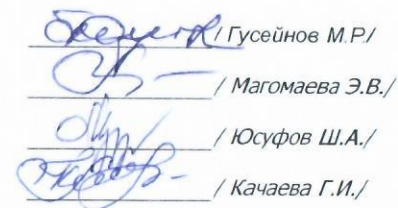 / Гусейнов М.Р./
/ Магомаева Э.В./
/ Юсуфов Ш.А./
/ Качаева Г.И./